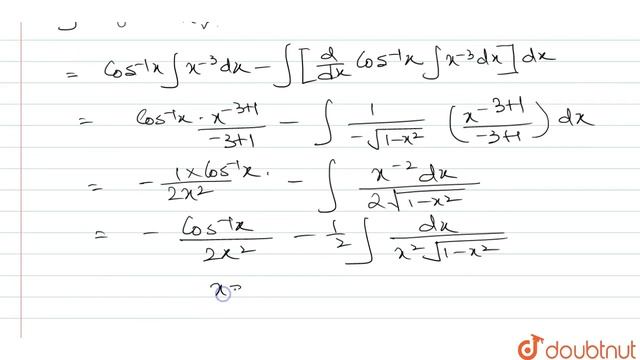 = Cos⁻¹x ∫ x⁻³ dx − ∫ [ d/dx Cos⁻¹x ∫ x⁻³ dx ] dx
= Cos⁻¹x · x⁻³⁺¹/−3+1 − ∫ 1/−√1−x² ( x⁻³⁺¹/−3+1 ) dx
= − 1×Cos⁻¹x/2x² · − ∫ x⁻² dx/2√1−x²
= − Cos⁻¹x/2x² − 1/2 ∫ dx/x²√1−x²
x=
doubtnut